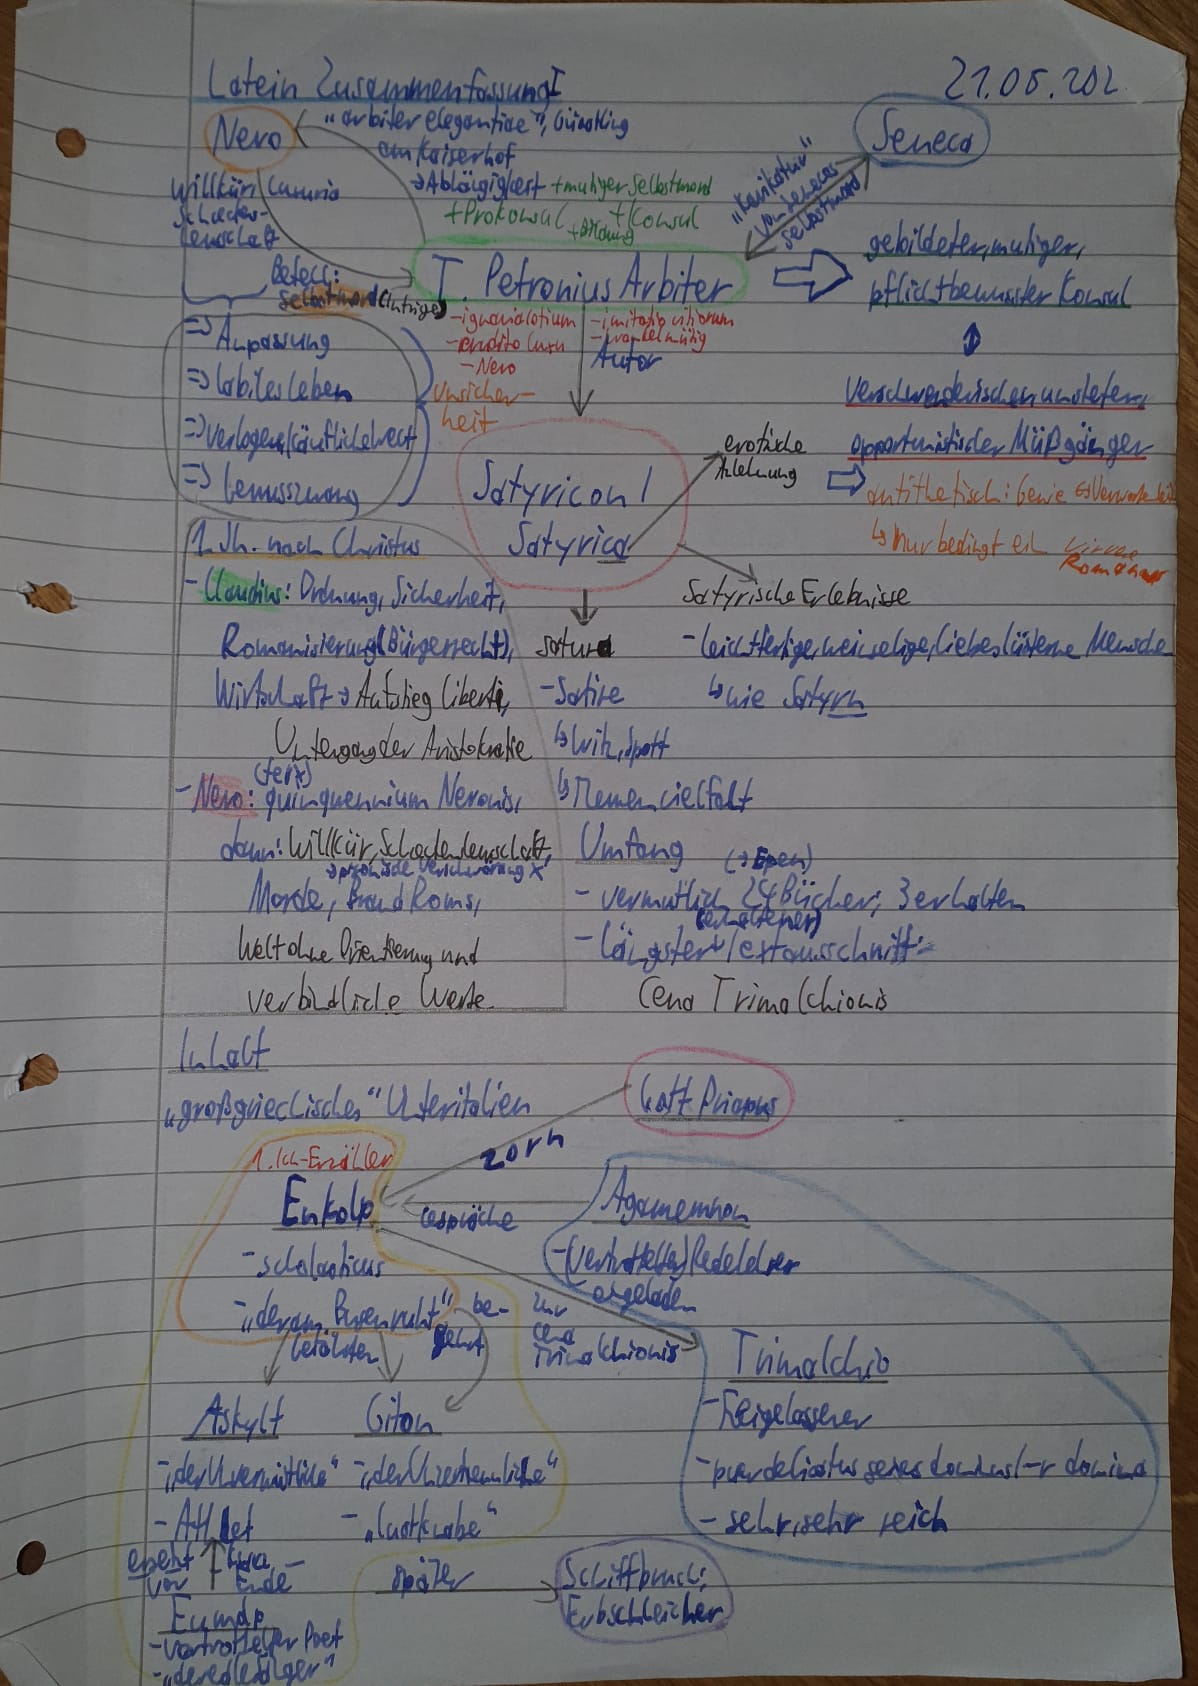 Latein Zusammenfassung I
21.05.202
Nero
„arbiter elegantiae“, Günstling
am Kaiserhof
Seneca
→ Abhängigkeit + mutiger Selbstmord
+ Prokonsul + Konsul
+ Bildung
Willkür, Luxuria
Schadenfreude
„Karikatur“
von Senecas
Selbstmord
Befehl:
Selbstmord (Intrige)
T. Petronius Arbiter
gebildeter, mutiger,
pflichtbewusster Konsul
- ignavia/otium
- erudito luxu
- Nero
- imitatio vitiorum
- wankelmütig
Autor
=> Anpassung
=> labiles Leben
=> verlogene/käufliche Welt
=>
Unsicher-
heit
verschwenderischer, unsteter,
opportunistischer Müßgänger
antithetisch: Genie
↳ nur bedingt ein
Satyricon /
Satyrica
erotische
Anlehnung
1. Jh. nach Christus
- Claudius: Ordnung, Sicherheit,
Romanisierung (Bürgerrecht),
Wirtschaft → Aufstieg Liberti,
Untergang der Aristokratie
(felix)
- Nero: quinquennium Neronis,
dann: Willkür,
→ pisonische Verschwörung X
Morde, Brand Roms,
Welt ohne Orientierung und
verbindliche Werte
satura
- Satire
↳ Witz, Spott
↳ Themenvielfalt
Satyrische Erlebnisse
- leichtfertige, weinselige, liebeslüsterne Mensche
↳ wie Satyrn
Umfang (→ Epen)
- vermutlich 24 Bücher; 3 erhalten
(erhaltener)
- längster Textausschnitt:
Cena Trimalchionis
Inhalt
„großgriechisches“ Unteritalien
Gott Priapus
Zorn
1. Ich-Erzähler
Enkolp
- scholasticus
- „der am Busen ruht“
Gespräche
Agamemnon
- (vertrottelter) Redelehrer
eingeladen
zur
Cena
Trimalchionis
be-
gehrt
Gefährten
Trimalchio
- Freigelassener
- puer delicatus seines dominus/-r domina
- sehr, sehr reich
Askylt
- „der Unermüdliche“
- Athlet
Giton
-
- „Lustknabe“
Ende
Eumolp
- vertrottelter Poet
-
später
Schiffbruch;
Erbschleicher